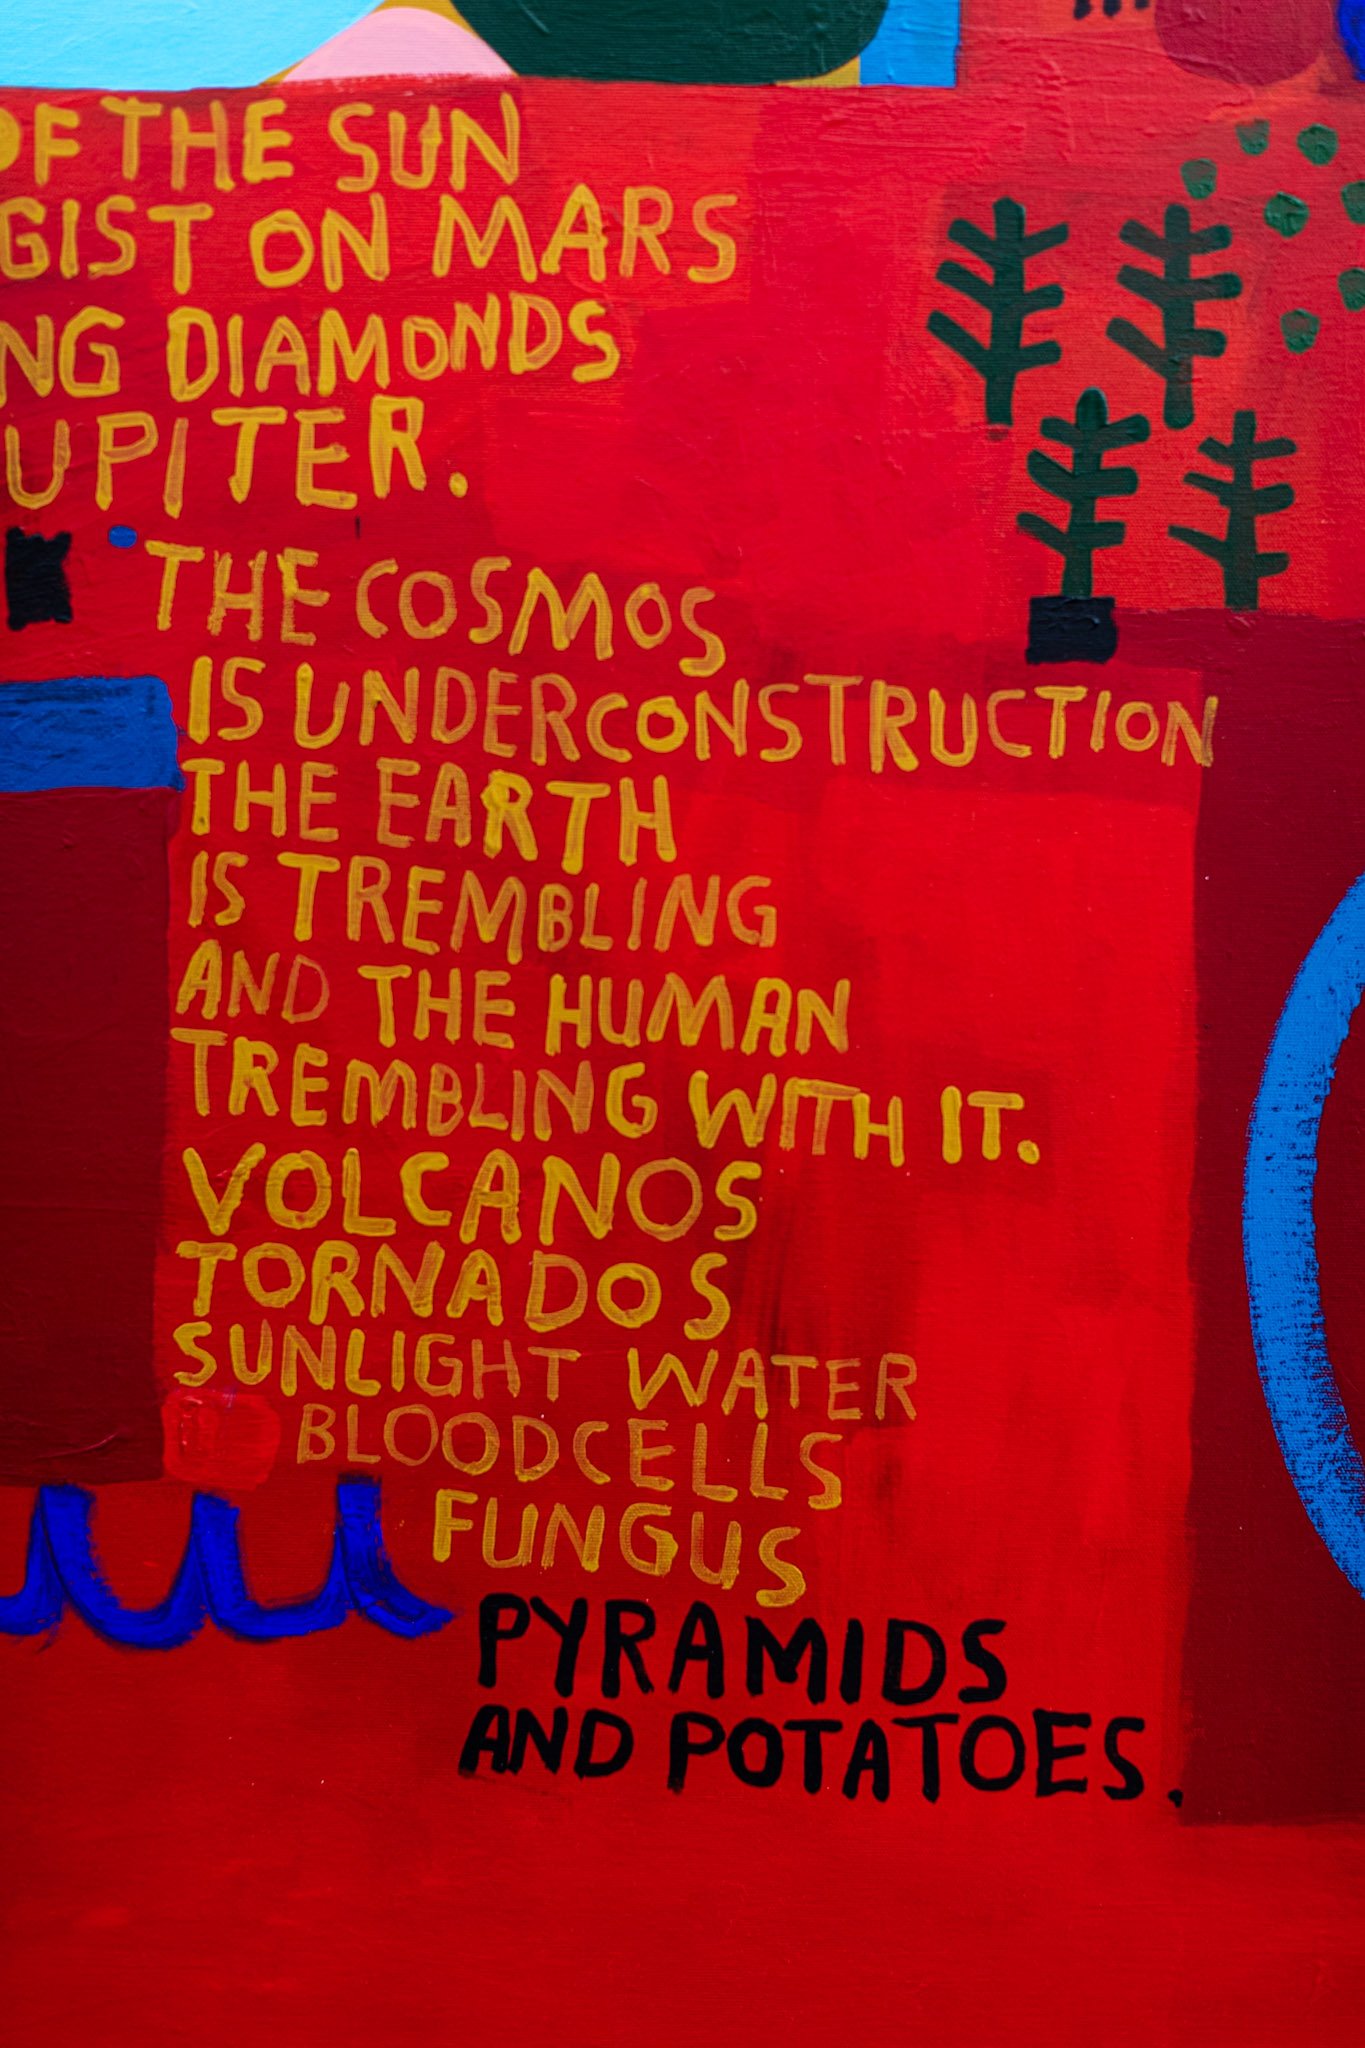 OF THE SUN
GIST ON MARS
NG DIAMONDS
UPITER.
THE COSMOS
IS UNDERCONSTRUCTION
THE EARTH
IS TREMBLING
AND THE HUMAN
TREMBLING WITH IT.
VOLCANOS
TORNADOS
SUNLIGHT WATER
BLOODCELLS
FUNGUS
PYRAMIDS
AND POTATOES.